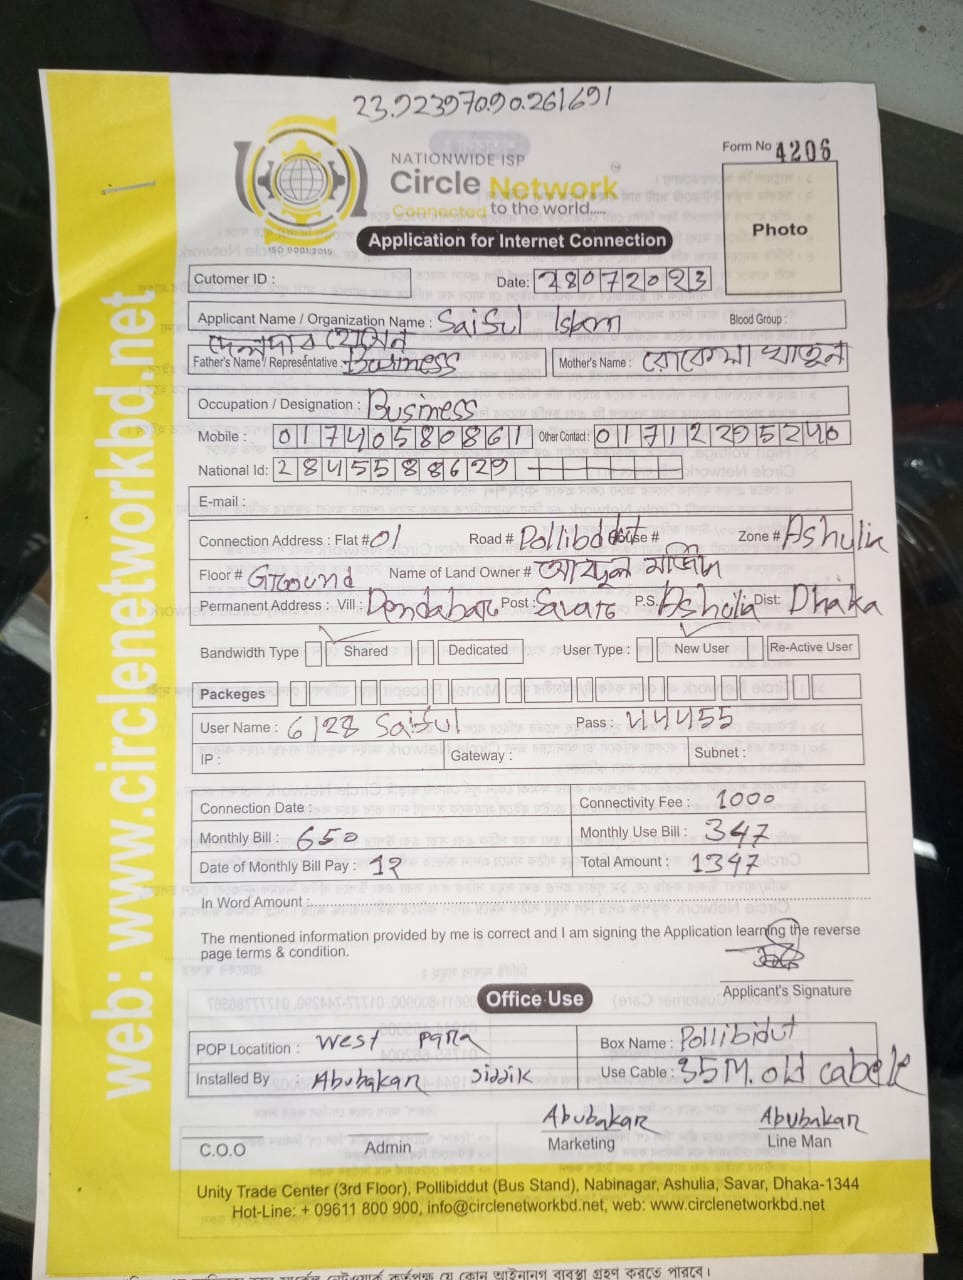 23.92397090.261691
NATIONWIDE ISP
Circle Network
Connected to the world.....
ISO 9001:2015
Form No 4206
Photo
Application for Internet Connection
Cutomer ID :
Date: 28072023
Applicant Name / Organization Name : Saiful Islam Blood Group :
দেলদার হোসেন
Father's Name / Representative : Business Mother's Name : রোকেয়া খাতুন
Occupation / Designation : Business
Mobile : 01740580861 Other Contact : 01712295240
National Id: 2845588629
E-mail :
Connection Address : Flat # 01 Road # Pollibddut House # Zone # Ashulia
Floor # Ground Name of Land Owner # আব্দুল মজিদ
Permanent Address : Vill : Dendabar Post : Savar P.S. Ashulia Dist: Dhaka
Bandwidth Type Shared Dedicated User Type : New User Re-Active User
Packeges
User Name : 6128 Saiful Pass : 44455
IP : Gateway : Subnet :
Connection Date : Connectivity Fee : 1000
Monthly Bill : 650 Monthly Use Bill : 347
Date of Monthly Bill Pay : 12 Total Amount : 1347
In Word Amount :
The mentioned information provided by me is correct and I am signing the Application learning the reverse
page terms & condition.
Applicant's Signature
Office Use
POP Locatition : West para Box Name : Pollibidut
Installed By : Abubakar Siddik Use Cable : 35M. old cabele
Abubakar Abubakar
C.O.O Admin Marketing Line Man
Unity Trade Center (3rd Floor), Pollibiddut (Bus Stand), Nabinagar, Ashulia, Savar, Dhaka-1344
Hot-Line: + 09611 800 900, info@circlenetworkbd.net, web: www.circlenetworkbd.net
web: www.circlenetworkbd.net